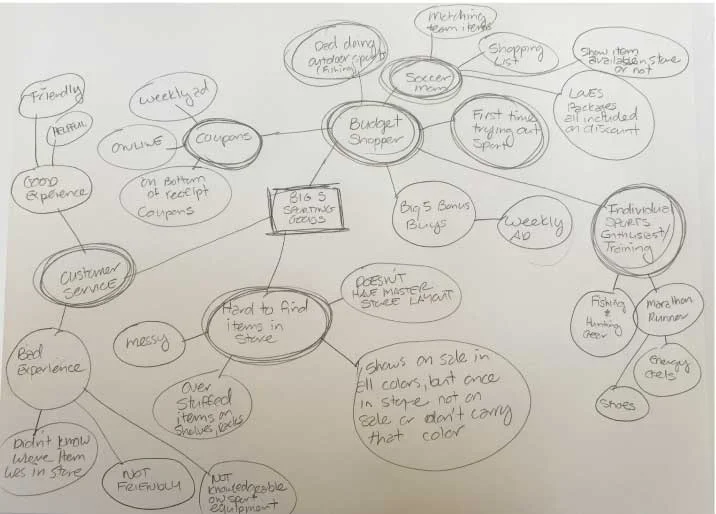 Matching
team items
Dad doing
outdoor sports
(Fishing)
Soccer
mom
Shopping
List
Show item
available in store
or not
Loves
Packages
all included
on discount
Friendly
HELPFUL
GOOD
Experience
Weekly ad
ONLINE
Coupons
on Bottom
of receipt
Coupons
Budget
Shopper
First time
trying out
Sport
BIG 5
SPORTING
GOODS
Big 5 Bonus
Buys
Weekly
AD
Individual
SPORTS
Enthusiast/
Training
Fishing
+
Hunting
Gear
Marathon
Runner
Energy
Gels
Shoes
Customer
Service
Hard to find
items in
Store
DOESN'T
HAVE MASTER
STORE LAYOUT
messy
Over
Stuffed
items on
Shelves, racks
Shows on sale in
all colors, but once
in store not on
sale or don't carry
that color
Bad
Experience
Didn't know
where item
was in store
NOT
FRIENDLY
NOT
Knowledgeable
on sport
equipment